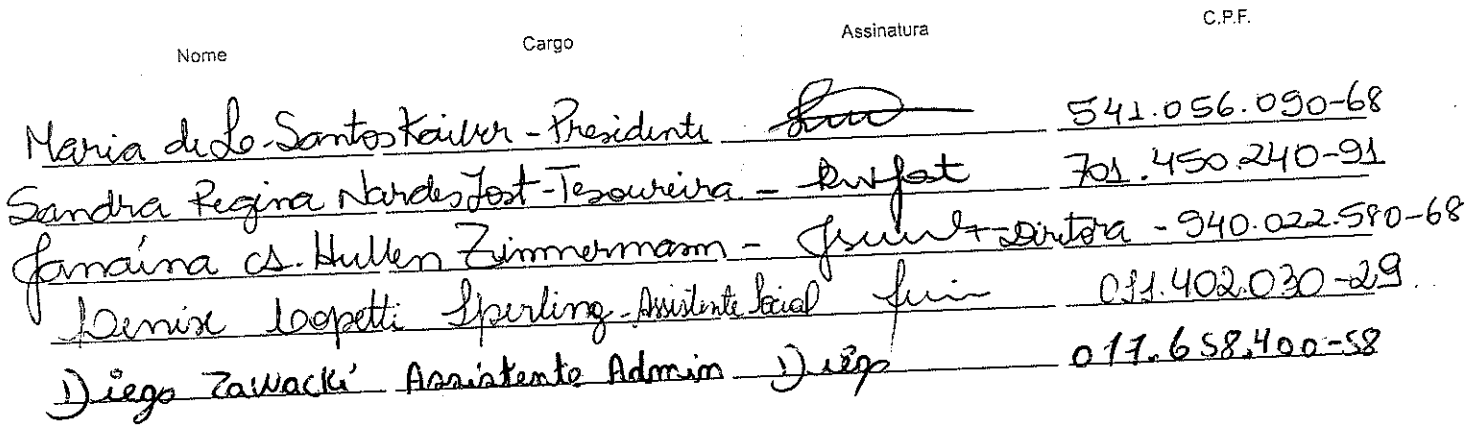 Nome Cargo Assinatura C.P.F.
Maria de Lo. Santos Kaiber - Presidente 541.056.090-68
Sandra Regina Nardes Jost - Tesoureira - 701.450.240-91
Janaína Hullen Zimmermann - Diretora - 940.022.580-68
Denise Sperling - Assistente Social 011.402.030-29
Diego Zawacki Assistente Admin Diego 017.658.400-58